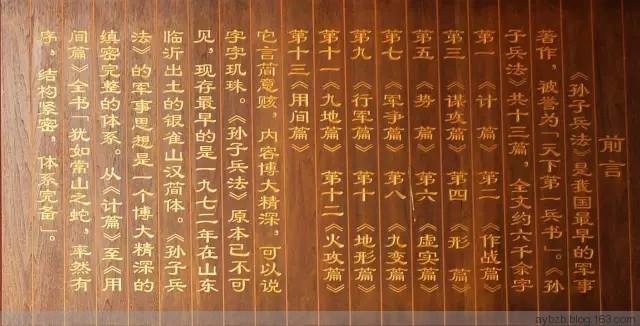 前言
《孙子兵法》是我国最早的军事
著作，被誉为“天下第一兵书”。《孙
子兵法》共十三篇，全文约六千余字
第一《计篇》 第二《作战篇》
第三《谋攻篇》 第四《形篇》
第五《势篇》 第六《虚实篇》
第七《军争篇》 第八《九变篇》
第九《行军篇》 第十《地形篇》
第十一《九地篇》 第十二《火攻篇》
第十三《用间篇》
它言简意赅，内容博大精深，可以说
字字玑珠。《孙子兵法》原本已不可
见，现存最早的是一九七二年在山东
临沂出土的银雀山汉简体。《孙子兵
法》的军事思想是一个博大精深的
缜密完整的体系。从《计篇》至《用
间篇》全书“犹如常山之蛇，率然有
序，结构紧密，体系完备”。
aybzb.blog.163.com